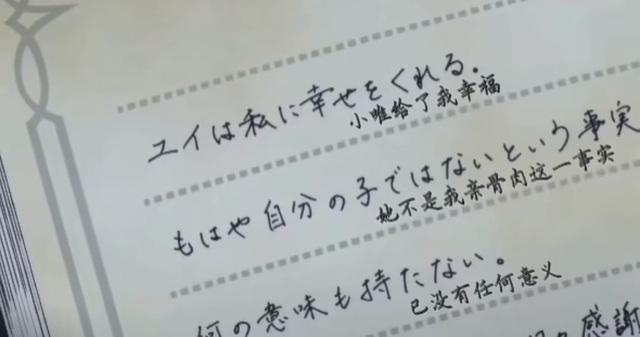 ユイは私に幸せをくれる.
小唯给了我幸福
もはや自分の子ではないという事実
她不是我亲骨肉这一事实
何の意味も持たない。
已没有任何意义
感謝